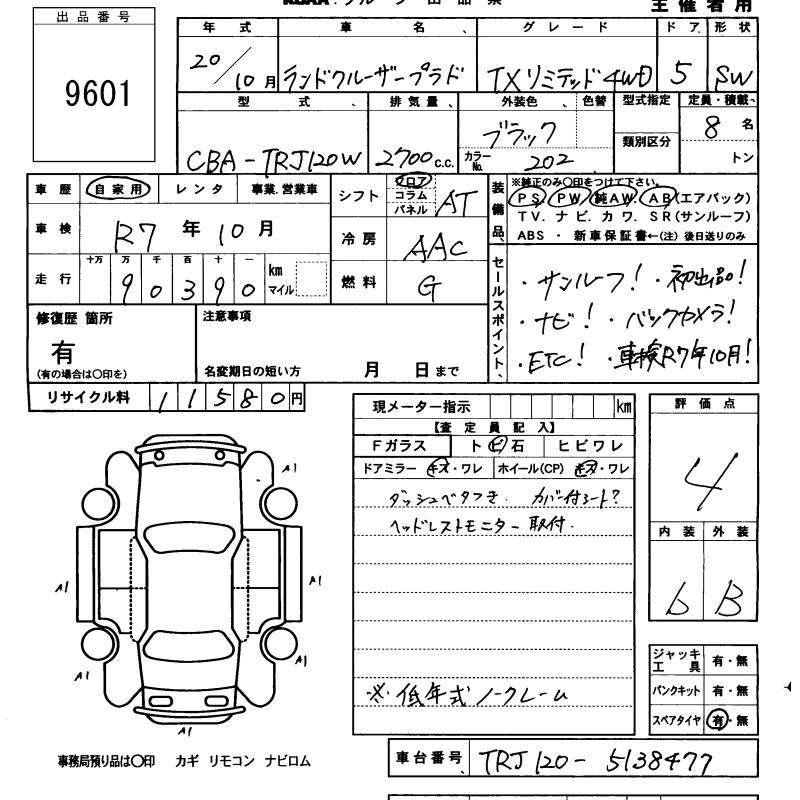 出品番号
9601
主催者用
年式 車名 グレード ドア 形状
20/10月 ランドクルーザープラド TXリミテッド4WD 5 SW
型式 排気量 外装色 色替 型式指定 定員・積載
CBA-TRJ120W 2700c.c. ブラック カラーNo. 202 類別区分 8名
トン
車歴 自家用 レンタ 事業.営業車
車検 R7年10月
走行 十万 万 千 百 十 一
90390 km マイル
シフト フロア コラム パネル AT
冷房 AAC
燃料 G
装備品 ※純正のみ〇印をつけて下さい。
PS PW 純AW. AB(エアバック)
TV. ナビ. カワ. SR(サンルーフ)
ABS ・ 新車保証書←(注) 後日送りのみ
セールスポイント
・サンルーフ! ・初出品!
・ナビ! ・バックカメラ!
・ETC! ・車検R7年10月!
修復歴 箇所
有
(有の場合は〇印を)
注意事項
名変期日の短い方 月 日まで
リサイクル料 11580円
現メーター指示 km
【査定員記入】
Fガラス トビ石 ヒビワレ
ドアミラー キズ・ワレ ホイール(CP) キズ・ワレ
ダッシュベタつき. カバー付シート?
ヘッドレストモニター 取付.
※.低年式ノークレーム
評価点
4
内装 外装
b B
ジャッキ工具 有・無
パンクキット 有・無
スペアタイヤ 有・無
A1
A1
A1
A1
A1
A1
A1
事務局預り品は〇印 カギ リモコン ナビロム
車台番号 TRJ120-5138477